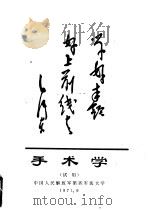 学好本领
好上前线去
毛泽东
手术学
(试用)
中国人民解放军第四军医大学
1971,9